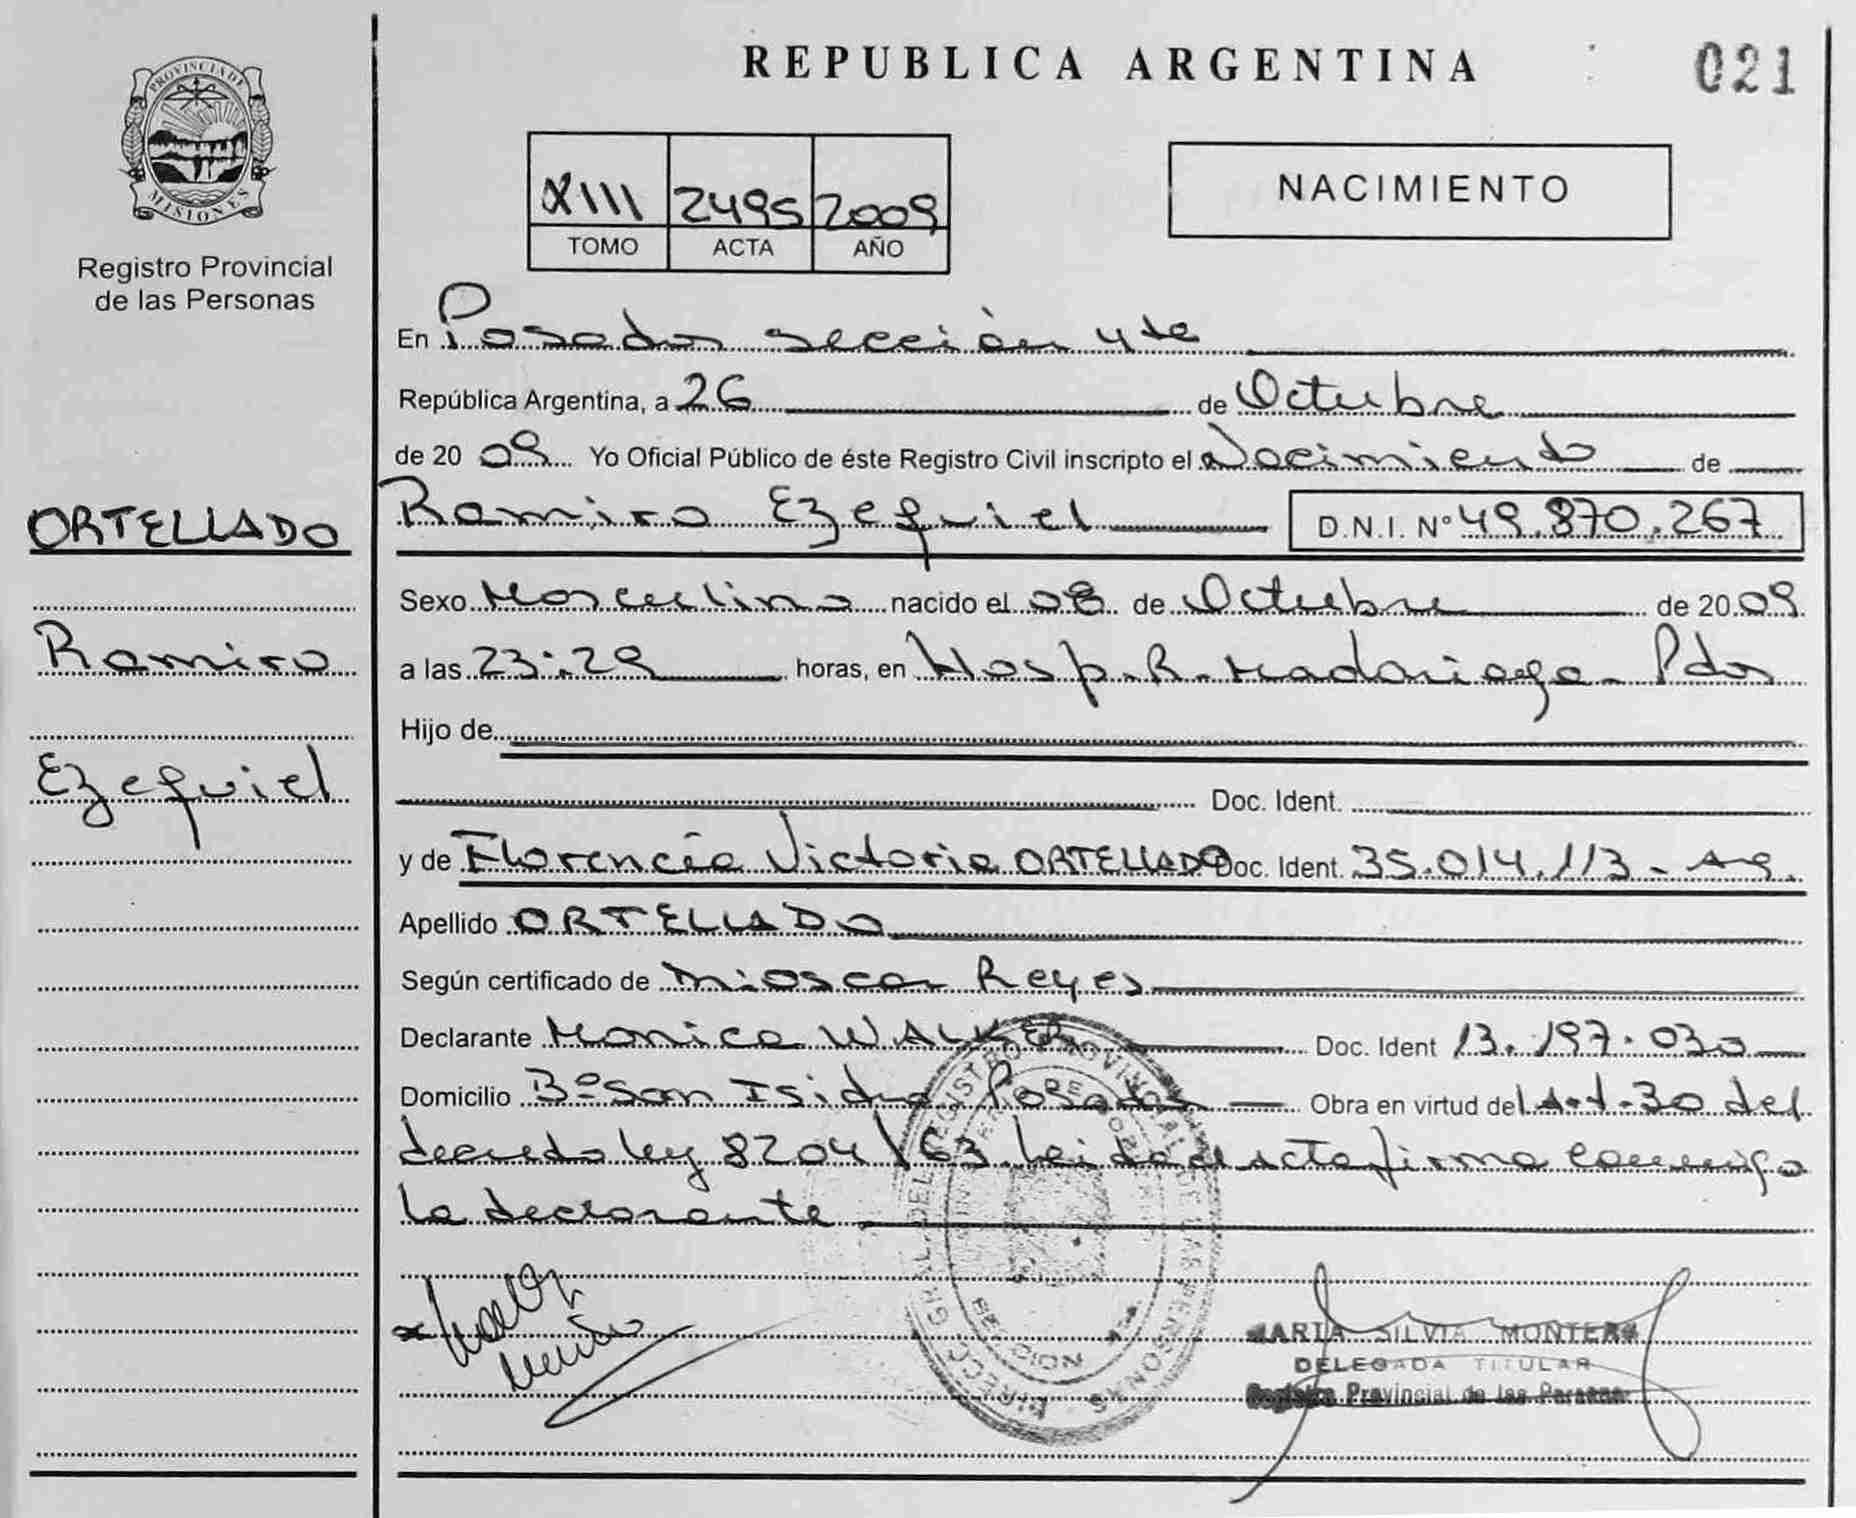 REPUBLICA ARGENTINA
021
PROVINCIA DE MISIONES
Registro Provincial
de las Personas
XIII 2495 2009
TOMO ACTA AÑO
NACIMIENTO
En Posadas sección 4ta
República Argentina, a 26 de Octubre
de 2009 Yo Oficial Público de éste Registro Civil inscripto el Nacimiento de
Ramiro Ezequiel D.N.I. N° 49.870.267
ORTELLADO
Ramiro
Ezequiel
Sexo Masculino nacido el 08 de Octubre de 2009
a las 23:29 horas, en Hosp. R. Madariaga - Pdas
Hijo de
Doc. Ident.
y de Florencia Victoria ORTELLADO Doc. Ident. 35.014.113 -
Apellido ORTELLADO
Según certificado de Reyes
Declarante Monica WALKER Doc. Ident 13.197.030
Domicilio B° San Isidro Posadas Obra en virtud del Art. 30 del
decreto ley 8204/63. Leida el acta firma conmigo
la declarante
DIRECC. GRAL. DEL REGISTRO PROVINCIAL DE LAS PERSONAS
SECCION 4ta.
MARIA SILVIA MONTERO
DELEGADA TITULAR
Registro Provincial de las Personas